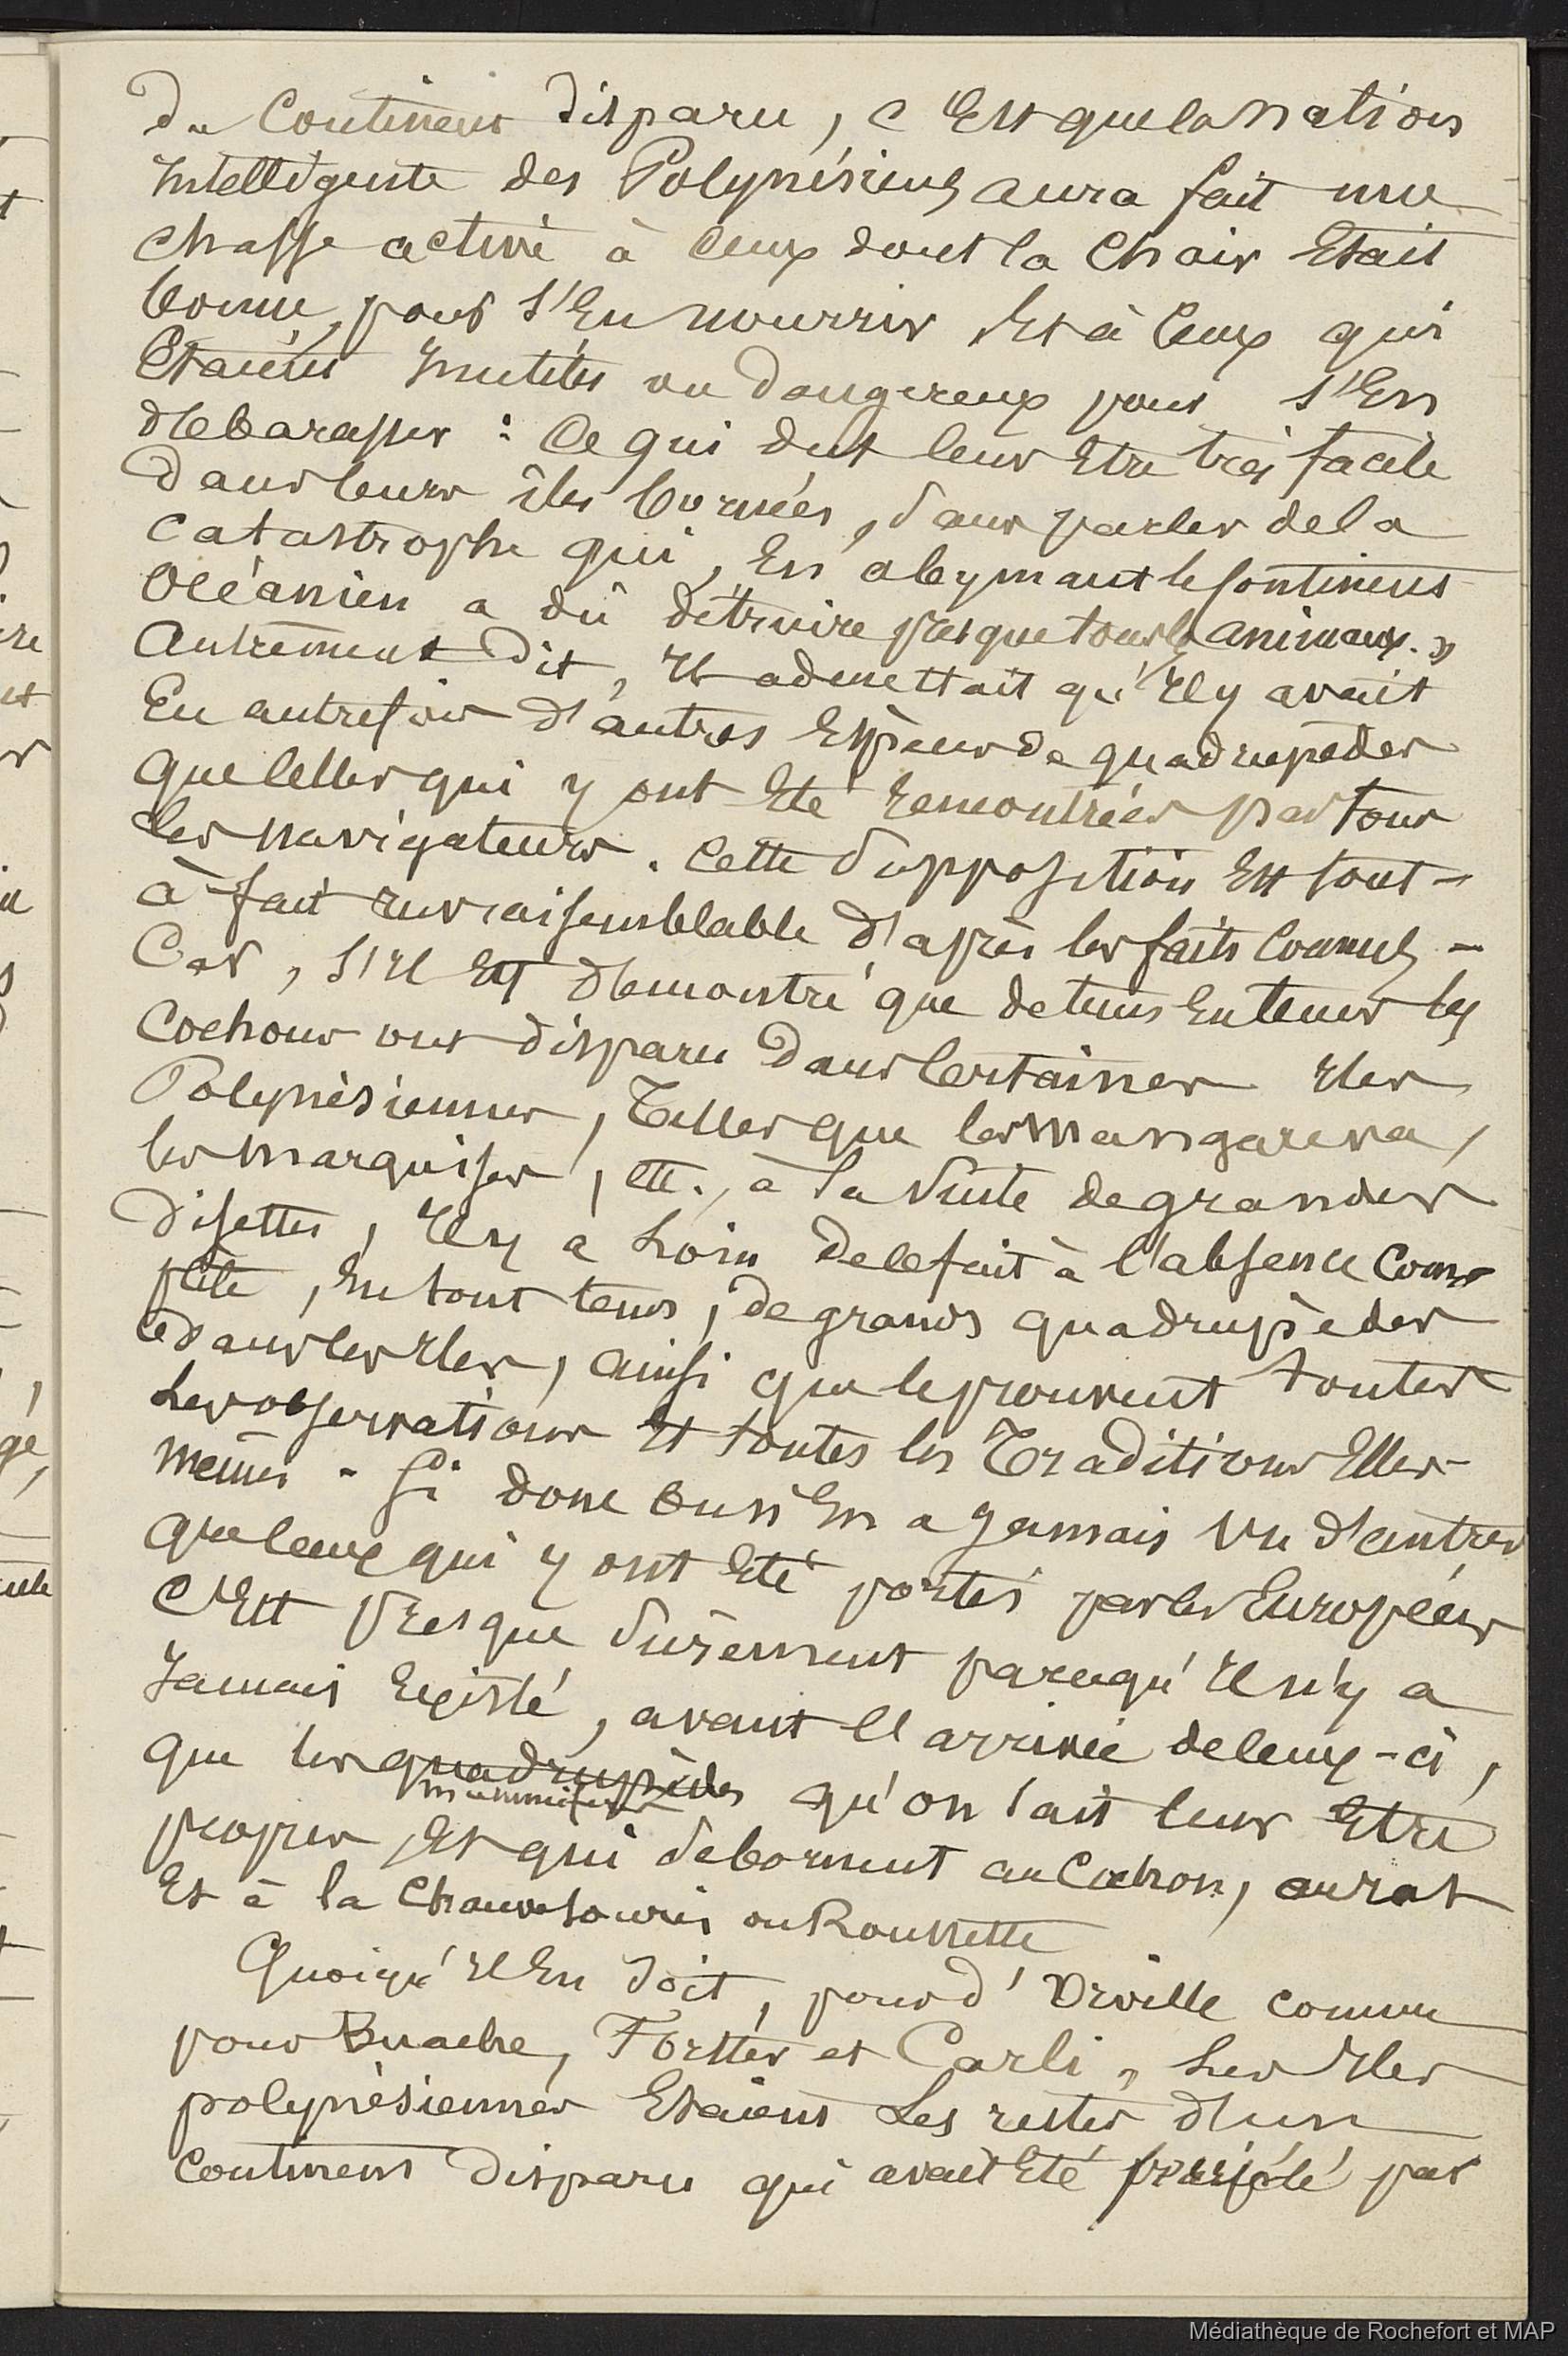 du Continent disparu, c'Est que la nation
Intelligente des Polynésiens aura fait une
chasse active à ceux dont la Chair Etait
bonne, pour s'En nourrir, Et à ceux qui
Etaient Inutiles ou dangereux pour s'En
débarasser : ce qui dut leur Etre très facile
dans leurs îles bornées, sans parler de la
catastrophe qui, En abymant le Continent
Océanien a dû détruire presque tous les animaux. »
Autrement dit, Il admettait qu'Il y avait
Eu autrefois d'autres Espèces de quadrupèdes
que celles qui y ont Eté rencontrées par tous
les navigateurs. Cette supposition Est tout-
à-fait invraisemblable d'après les faits connus -
Car, s'Il Est démontré que de tems En tems les
Cochons ont disparu dans Certaines Iles
Polynésiennes, Telles que les Mangareva,
les Marquises, etc., à la suite de grandes
disettes, Il y a loin de ce fait à l'absence Com-
plète, En tout tems, de grands quadrupèdes
dans les Iles, ainsi que le prouvent toutes
les observations Et toutes les Traditions Elles-
mêmes. Si donc on n'En a Jamais vu d'autres
que ceux qui y ont Eté portés par les Européens
c'Est Presque sûrement parcequ'Il n'y a
Jamais Existé, avant l'arrivée de ceux-ci,
que les quadrupèdes qu'on sait leur Etre
mammifères
propres, Et qui se bornent au Cochon, au rat
Et à la Chauve souris ou Roussette
Quoiqu'Il En soit, pour d'Urville comme
pour Buache, Forster et Carli, les Iles
polynésiennes Etaient Les restes d'un
continent disparu qui avait Eté peuplé par
Médiathèque de Rochefort et MAP